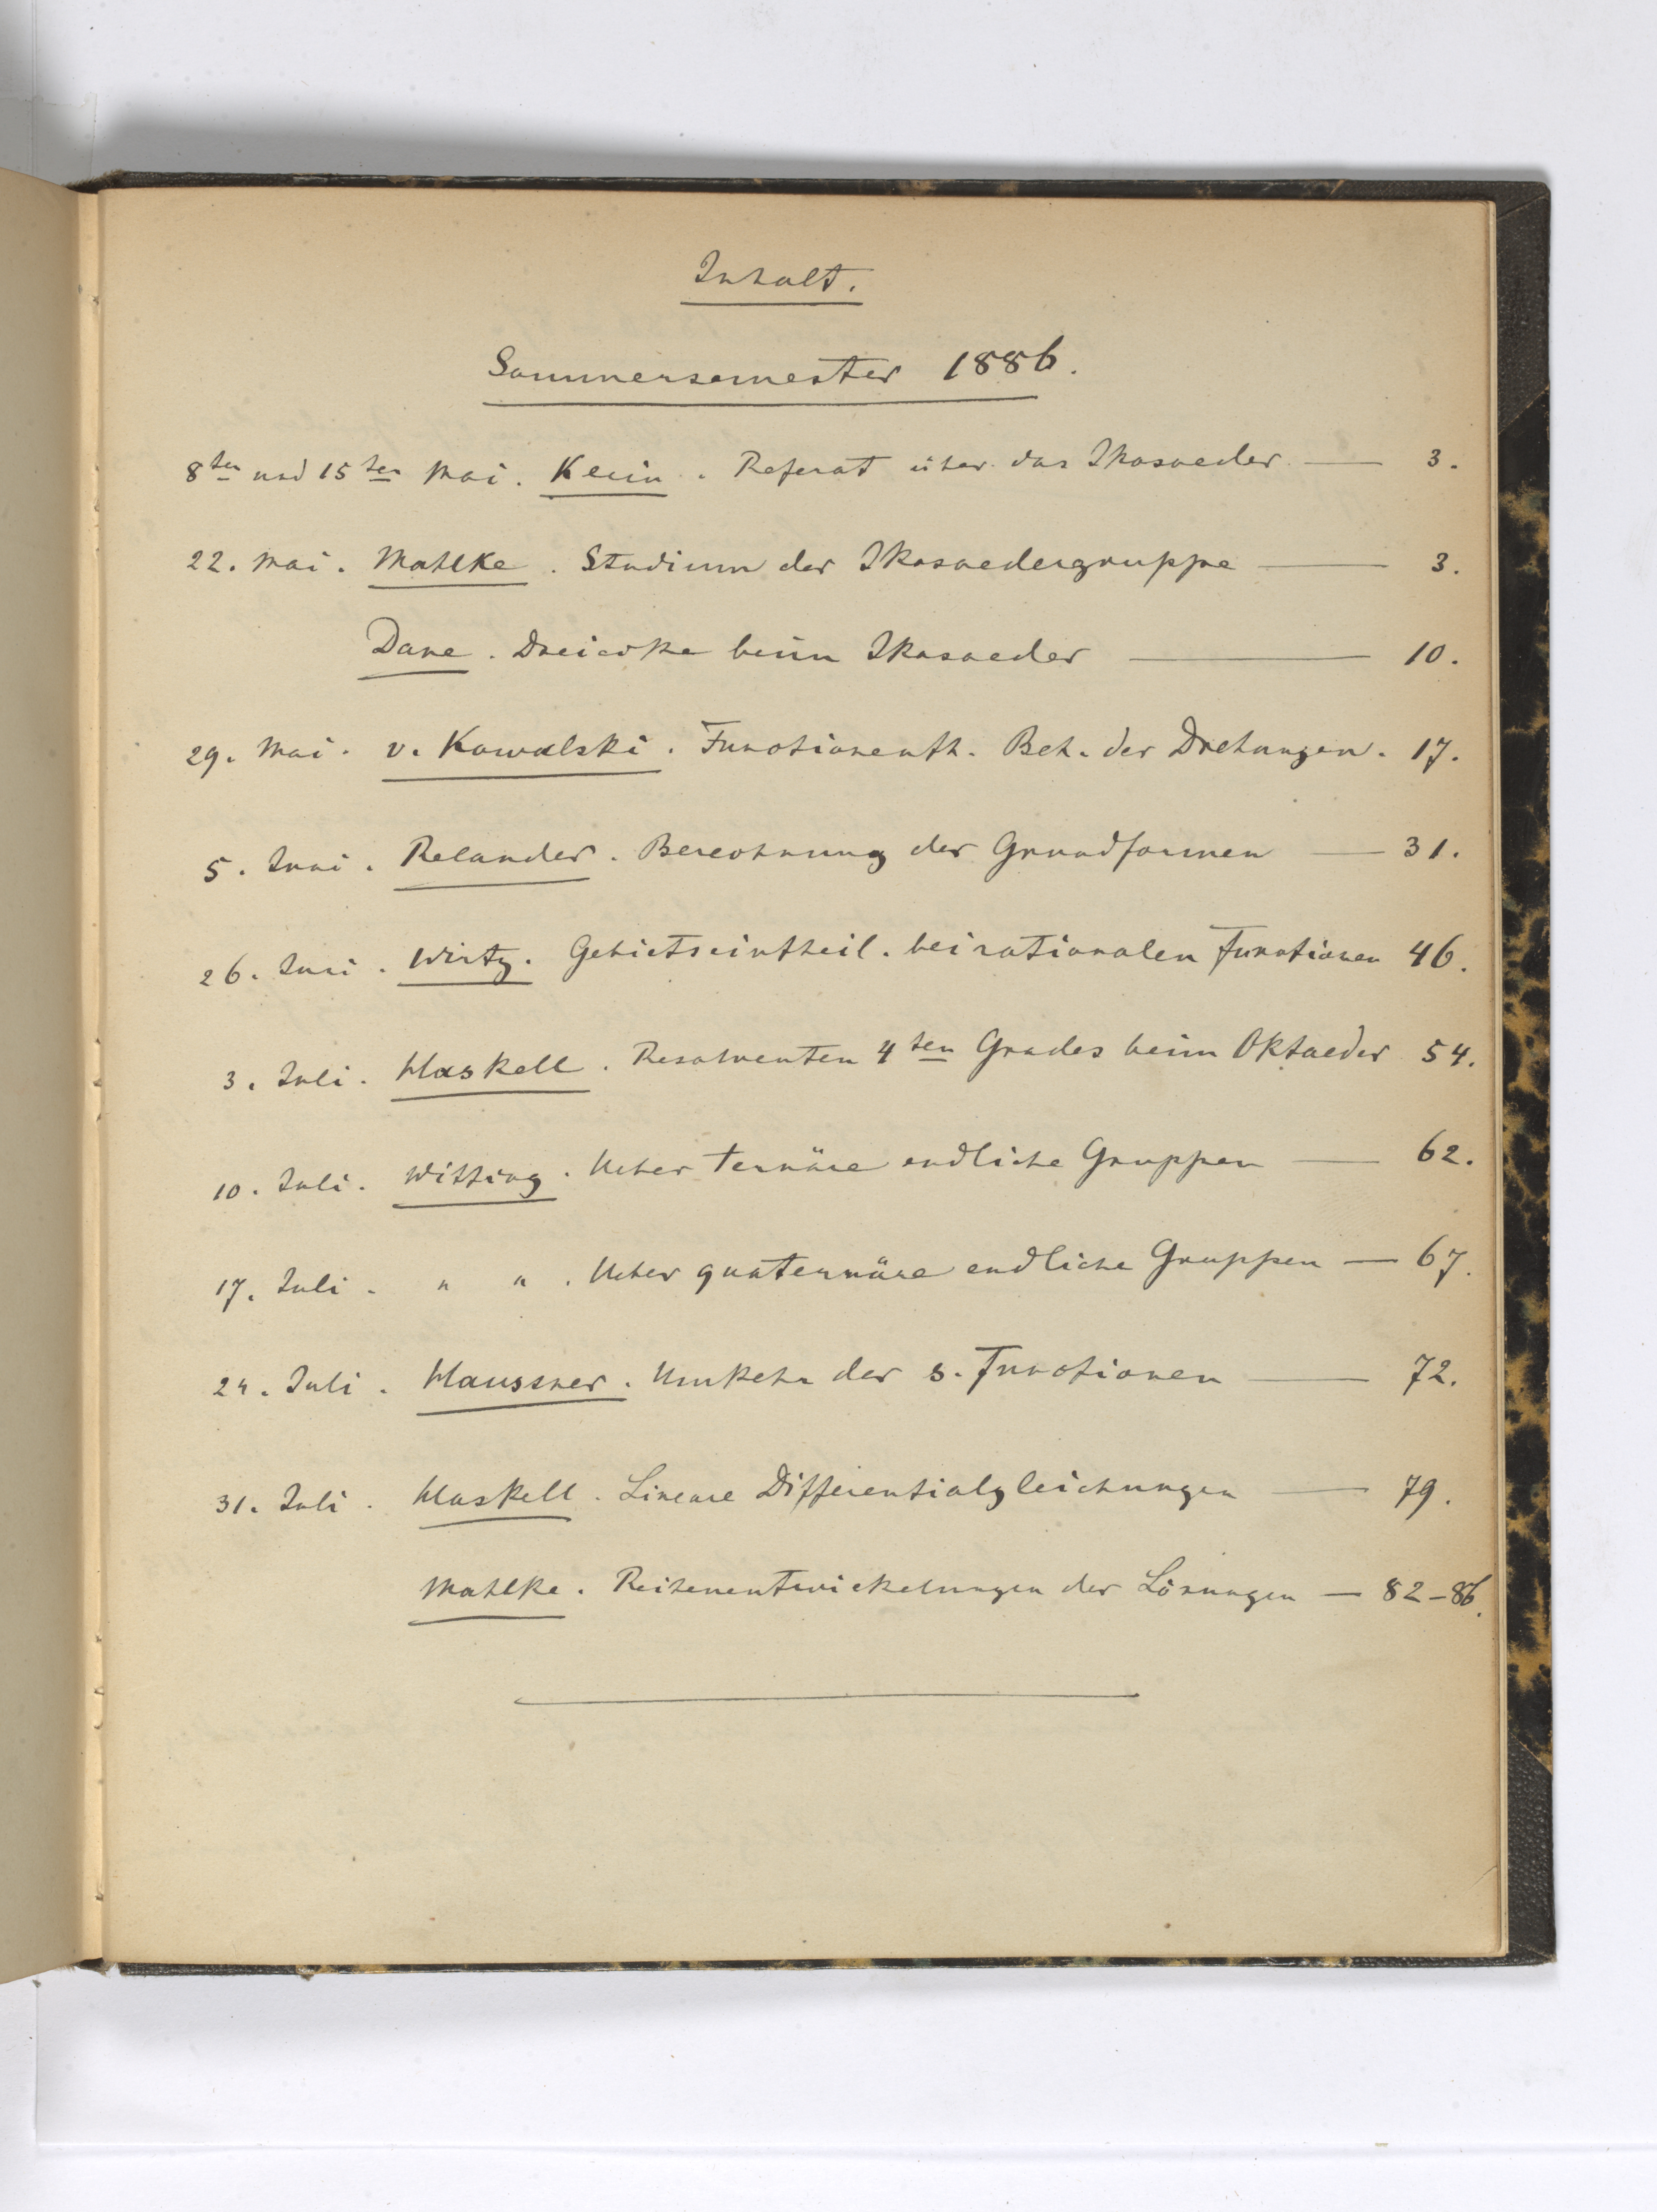 Inhalt.
Sommersemester 1886.
8ten und 15ten Mai. Klein. Referat über das Ikosaeder — 3.
22. Mai. Mahlke. Studium der Ikosaedergruppe — 3.
Dane. Dreiecke beim Ikosaeder — 10.
29. Mai. v. Kowalski. Functionenth. Beh. der Drehungen. 17.
5. Juni. Relander. Berechnung der Grundformen — 31.
26. Juni. Wirtz. Gebietseintheil. bei rationalen Functionen 46.
3. Juli. Haskell. Resolventen 4ten Grades beim Oktaeder 54.
10. Juli. Witting. Ueber ternäre endliche Gruppen — 62.
17. Juli. " " . Ueber quaternäre endliche Gruppen — 67.
24. Juli. Haussner. Umkehr der s. Functionen — 72.
31. Juli. Haskell. Lineare Differentialgleichungen — 79.
Mahlke. Reihenentwickelungen der Lösungen — 82-86.